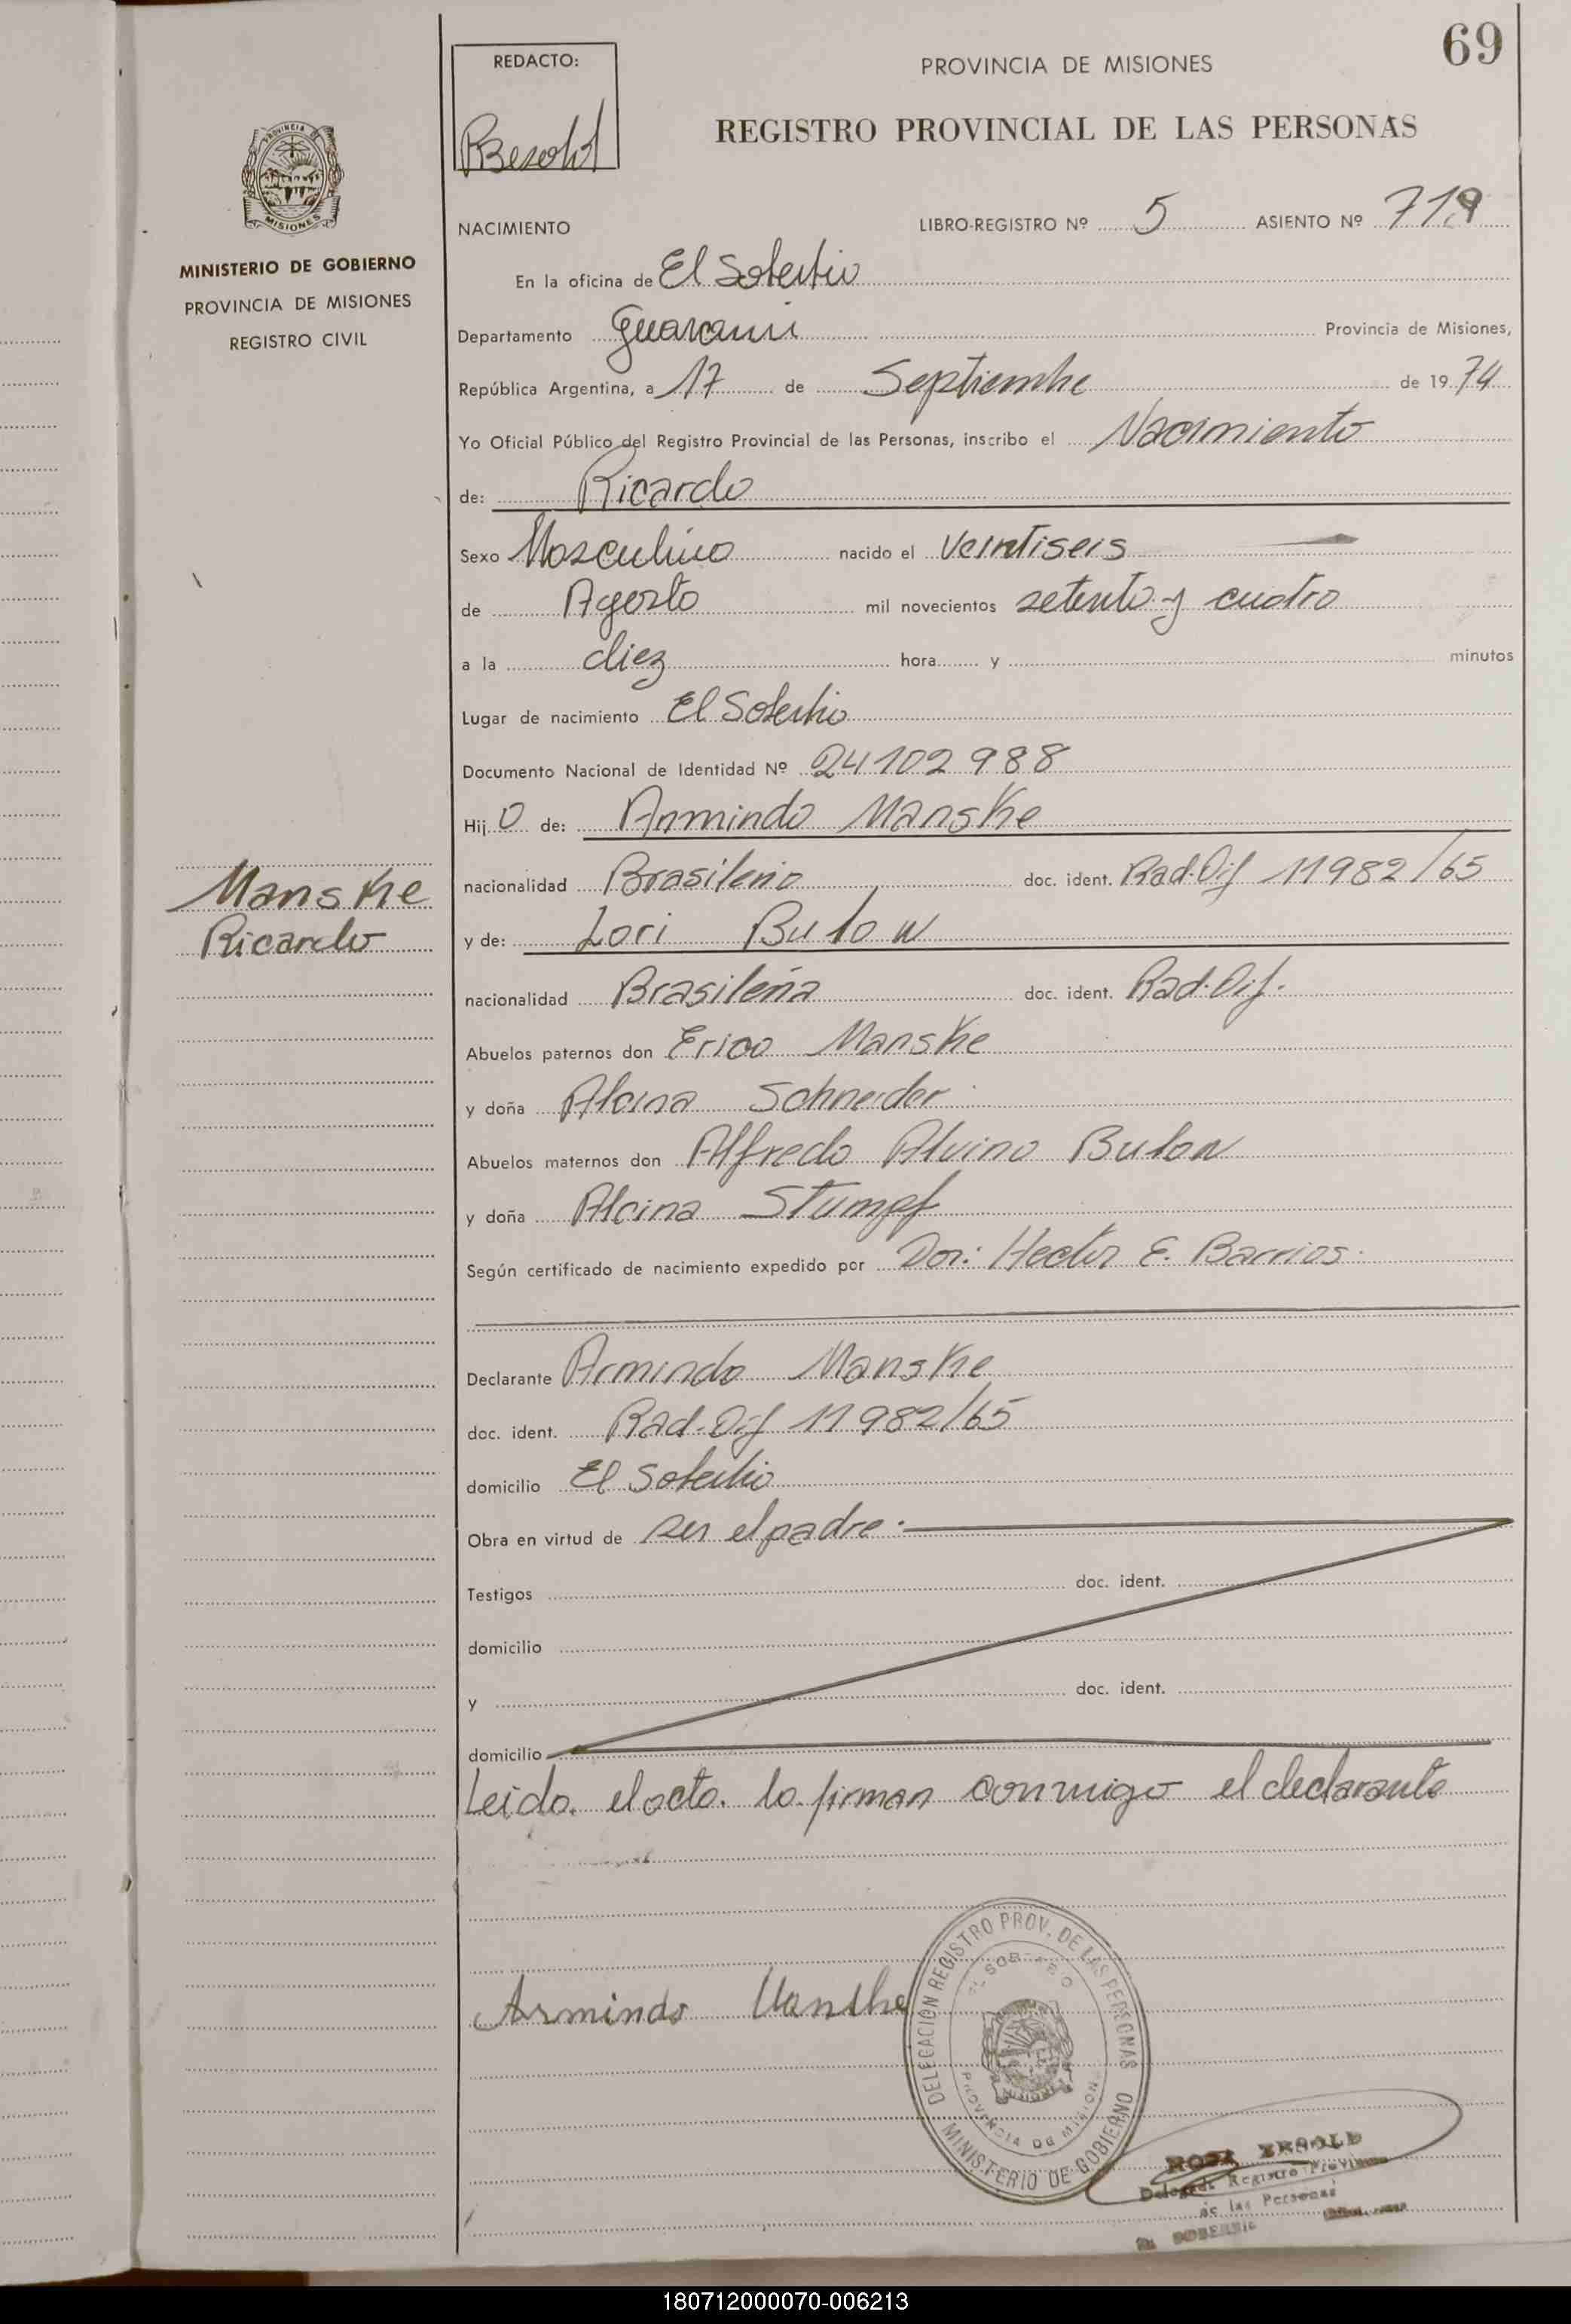 69
REDACTO:
PROVINCIA DE MISIONES
REGISTRO PROVINCIAL DE LAS PERSONAS
NACIMIENTO
LIBRO-REGISTRO Nº 5 ASIENTO Nº 719
MINISTERIO DE GOBIERNO
PROVINCIA DE MISIONES
REGISTRO CIVIL
En la oficina de El Soberbio
Departamento Guarani Provincia de Misiones,
República Argentina, a 17 de Septiembre de 1974
Yo Oficial Público del Registro Provincial de las Personas, inscribo el Nacimiento
de: Ricardo
Sexo Masculino nacido el veintiseis
de Agosto mil novecientos setenta y cuatro
a la diez hora y minutos
Lugar de nacimiento El Soberbio
Documento Nacional de Identidad Nº 24102988
Hijo de: Armindo Manske
nacionalidad Brasileño doc. ident. Rad. Dif 11982/65
Manske
Ricardo
y de: Lori Bulow
nacionalidad Brasileña doc. ident. Rad. Dif.
Abuelos paternos don Erico Manske
y doña Alcina Schneider
Abuelos maternos don Alfredo Alvino Bulow
y doña Alcina Stumpf
Según certificado de nacimiento expedido por Dor: Hector E. Barrios.
Declarante Armindo Manske
doc. ident. Rad-Dif 11982/65
domicilio El Soberbio
Obra en virtud de ser el padre.
Testigos doc. ident.
domicilio
y doc. ident.
domicilio
Leido el acto lo firman conmigo el declarante
Armindo Manske
DELEGACION REGISTRO PROV. DE LAS PERSONAS
EL SOBERBIO
PROVINCIA DE MISIONES
MINISTERIO DE GOBIERNO
de las Personas
180712000070-006213